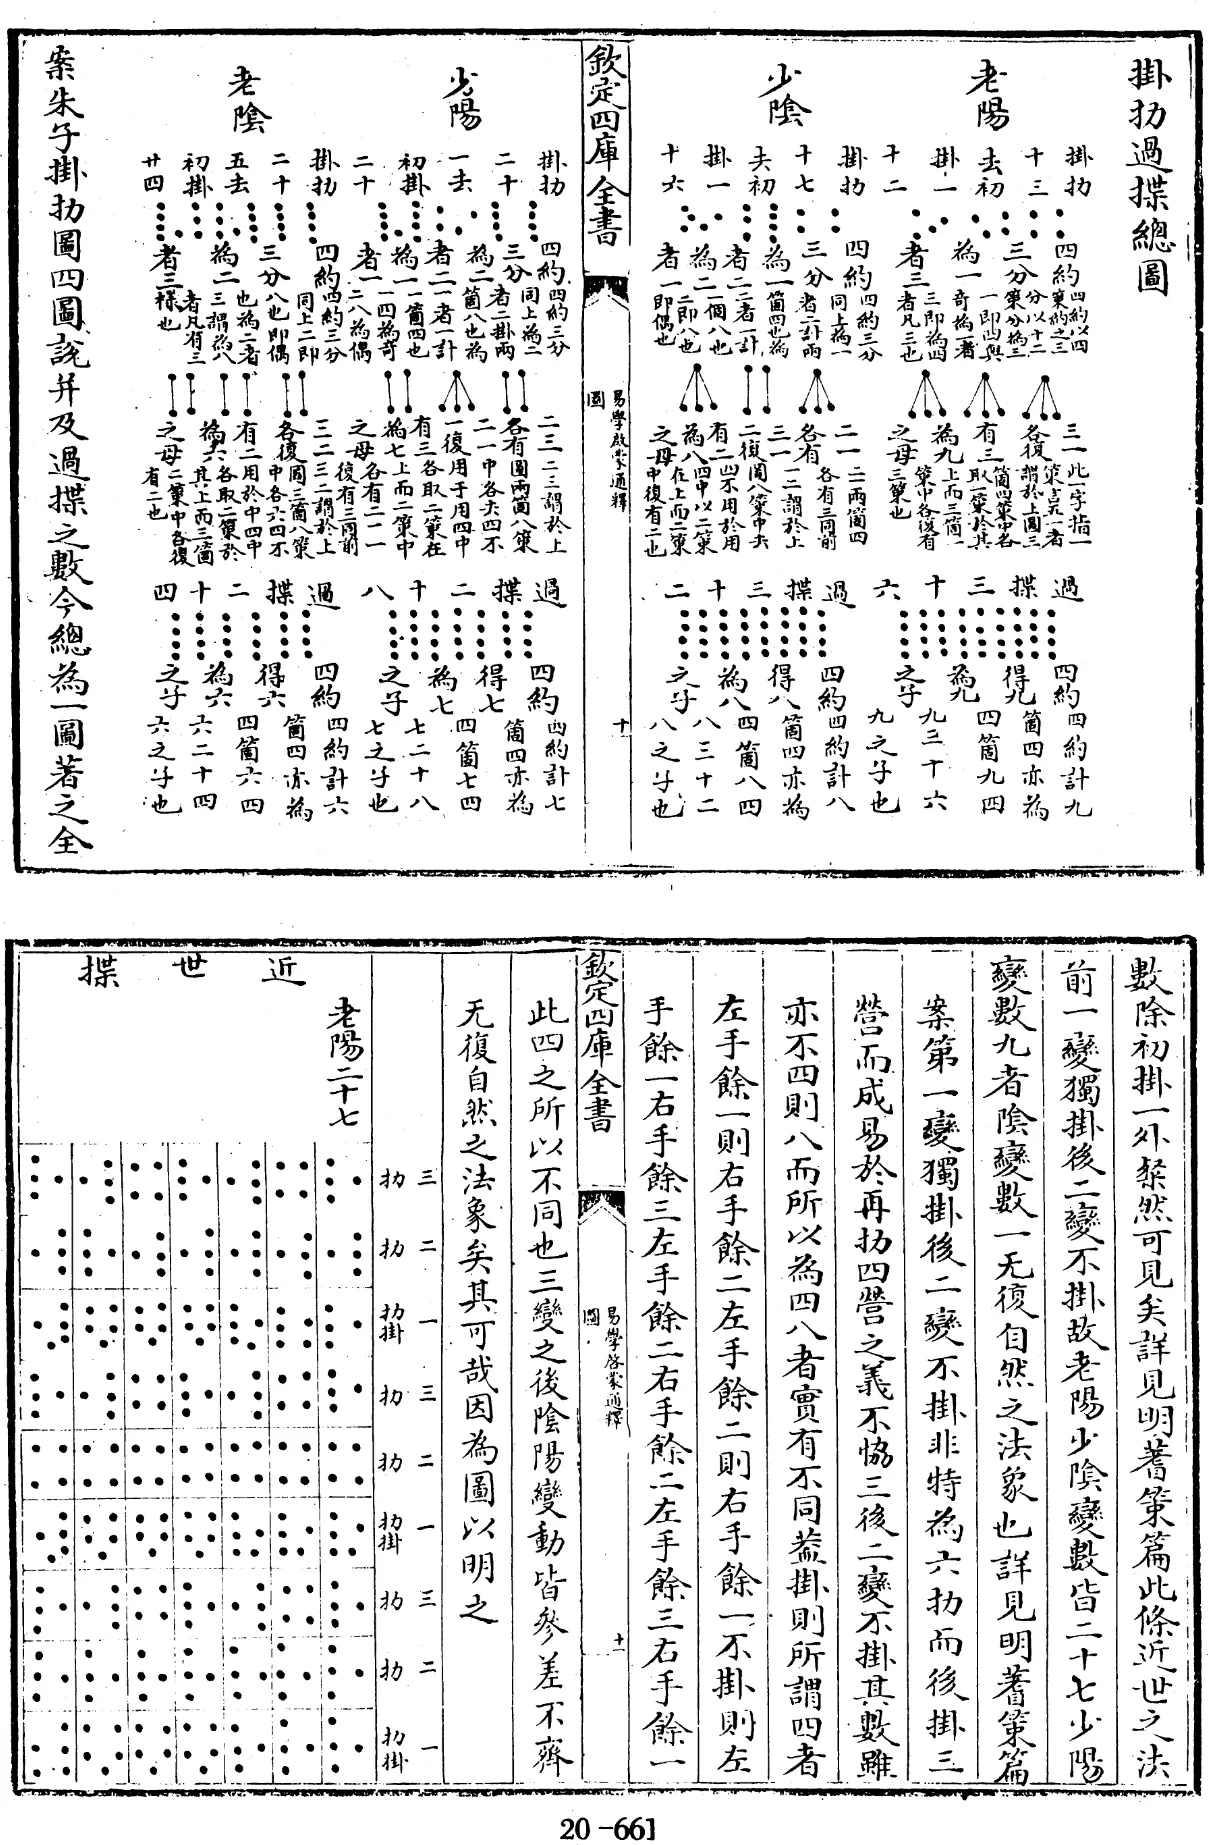 掛扐過揲總圖
老陽
掛扐
十三
去初
掛一
十二
四約
三分
為一
者三
四約以四
策約之三
分以十二
策分為三
一即四與
奇為一者
三即為四
者凡三也
三一
各復
有三
為九
之母
此一字指一
策言一者
謂於上圖三
箇四策中各
取一策於其
上而三箇一
策中各復有
三策也
過揲三十六
四約
得九
為九
之子
四約計九
箇四亦為
四箇九四
九三十六
九之子也
少陰
掛扐
十七
去初
掛一
十六
四約
三分
為一
者二
為二
者一
四約三分
同上為一
者二計兩
箇四也為
二者一計
一個八也
二即八也
一即偶也
二一
各有
三一
二復
有二
為八
之母
二兩箇四
各有三同前
一二謂於上
圖八策中去
四不用於用
四中以二策
在上而二策
中復有二也
過揲三十二
四約
得八
為八
之子
四約計八
箇四亦為
四箇八四
八三十二
八之子也
欽定四庫全書
易學啟蒙通釋
圖
十
少陽
掛扐
二十
一去
初掛
二十
四約
三分
為二
者二
為一
者一
四約三分
同上為二
者二掛兩
箇八也為
一者一計
一箇四也
一四為奇
二八為偶
過揲二十八
四約
得七
為七
之子
四約計七
箇四亦為
四箇七四
七二十八
七之子也
老陰
掛扐
二十
五去
初掛
廿四
四約
三分
為二
者三
四約三分
同上二即
八也即偶
也為二者
三謂為八
者凡有三
樣也
三二
各復
有二
為六
之母
過揲二十四
四約
得六
為六
之子
四約計六
箇四亦為
四箇六四
六二十四
六之子也
案朱子掛扐圖四圖說并及過揲之數今總為一圖著之全
數除初掛一外粲然可見矣詳見明蓍策篇此條近世之法
前一變獨掛後二變不掛故老陽少陰變數皆二十七少陽
變數九老陰變數一无復自然之法象也詳見明蓍策篇
案第一變獨掛後二變不掛非特為六扐而後掛三
營而成易於再扐四營之義不協三後二變不掛其數雖
亦不四則八而所以為四八者實有不同葢掛則所謂四者
左手餘一則右手餘二左手餘二則右手餘一不掛則左
手餘一右手餘三左手餘二右手餘二左手餘三右手餘一
欽定四庫全書
易學啟蒙通釋
圖
十一
此四之所以不同也三變之後陰陽變動皆參差不齊
无復自然之法象矣其可哉因為圖以明之
三扐
二扐
一扐掛
三扐
二扐
一扐掛
三扐
二扐
一扐掛
近世揲
老陽二十七
20-661